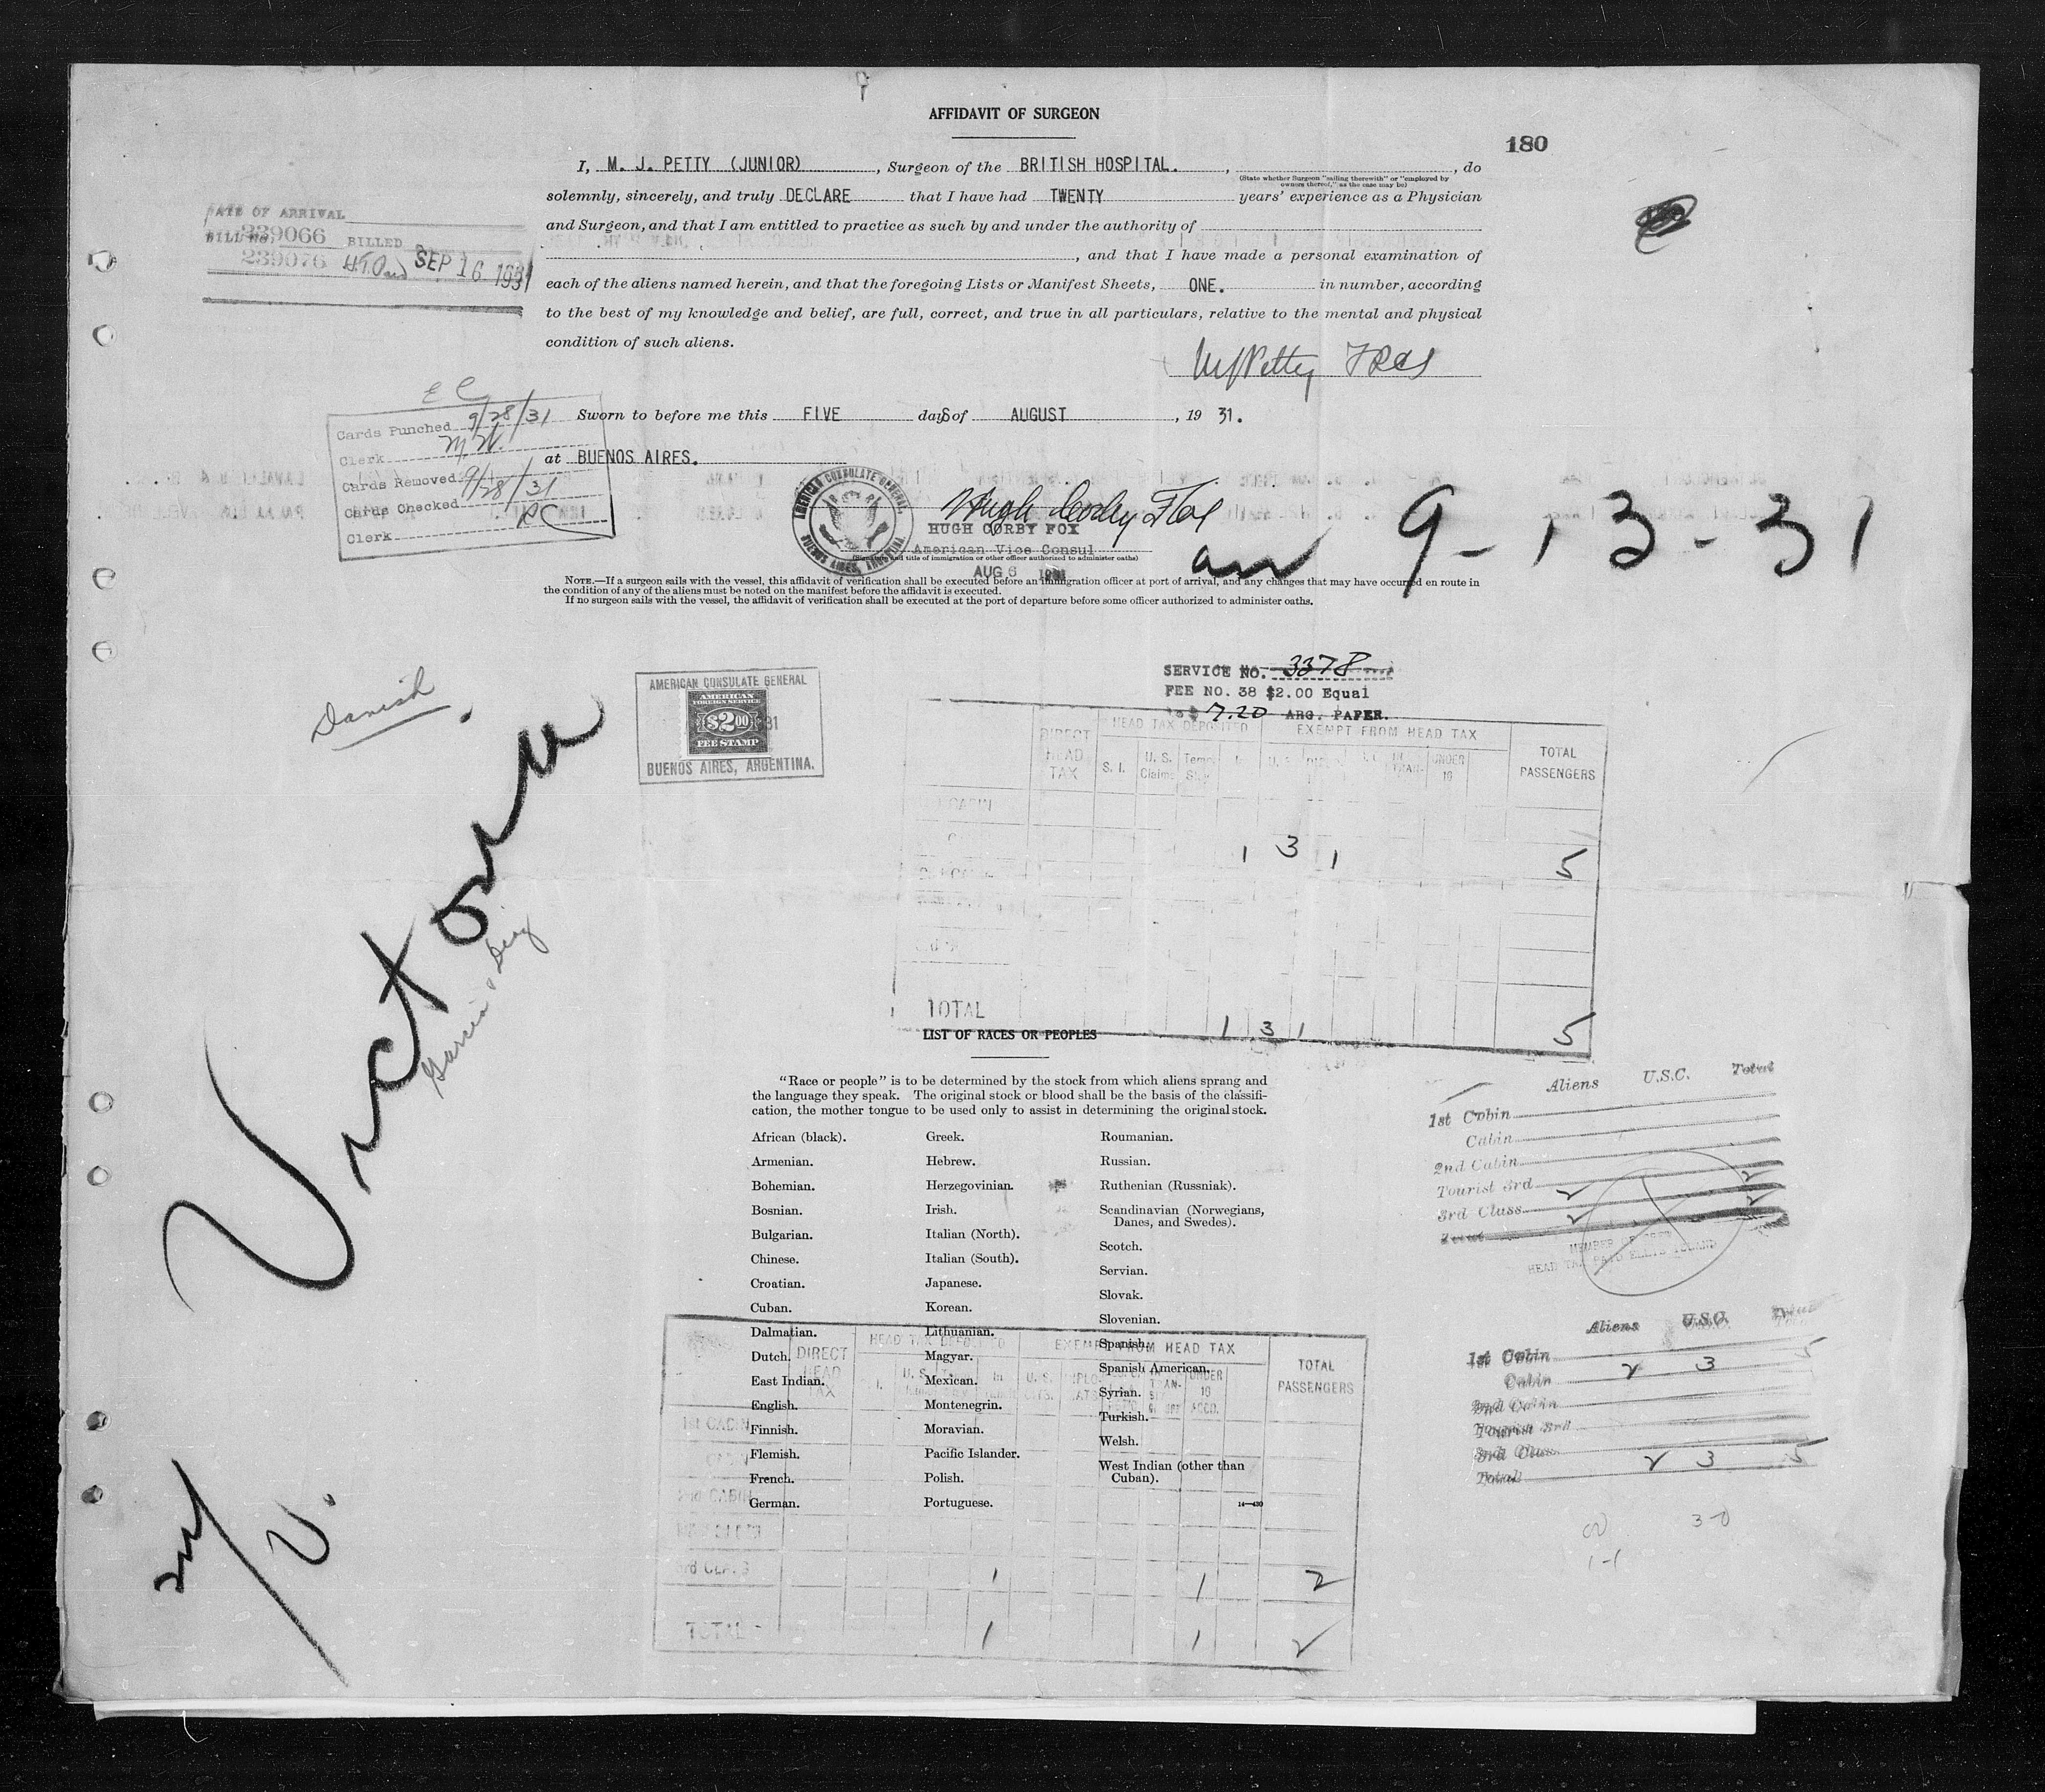 AFFIDAVIT OF SURGEON
180
I, M. J. PETTY (JUNIOR), Surgeon of the BRITISH HOSPITAL. , , do
(State whether Surgeon "sailing therewith" or "employed by
owners thereof," as the case may be)
solemnly, sincerely, and truly DECLARE that I have had TWENTY years' experience as a Physician
and Surgeon, and that I am entitled to practice as such by and under the authority of
, and that I have made a personal examination of
each of the aliens named herein, and that the foregoing Lists or Manifest Sheets, ONE. in number, according
to the best of my knowledge and belief, are full, correct, and true in all particulars, relative to the mental and physical
condition of such aliens.
DATE OF ARRIVAL
BILL No. 239066 BILLED
239076 SEP 16 1931
MJPetty FRCS
Sworn to before me this FIVE dayS of AUGUST, 19 31.
at BUENOS AIRES.
E C
Cards Punched 9/28/31
Clerk M.W.
Cards Removed 9/28/31
Cards Checked
Clerk RC
AMERICAN CONSULATE GENERAL,
BUENOS AIRES, ARGENTINA
Hugh Corby Fox
HUGH CORBY FOX
American Vice Consul
(Signature and title of immigration or other officer authorized to administer oaths)
AUG 6 1931
arr 9-13-31
NOTE.—If a surgeon sails with the vessel, this affidavit of verification shall be executed before an immigration officer at port of arrival, and any changes that may have occurred en route in
the condition of any of the aliens must be noted on the manifest before the affidavit is executed.
If no surgeon sails with the vessel, the affidavit of verification shall be executed at the port of departure before some officer authorized to administer oaths.
Danish
AMERICAN CONSULATE GENERAL
AMERICAN
FOREIGN SERVICE
$2.00
FEE STAMP
BUENOS AIRES, ARGENTINA.
SERVICE NO. 3378
FEE NO. 38 $2.00 Equal
to $ 7.20 ARG. PAPER.
DIRECT HEAD TAX
HEAD TAX DEPOSITED
EXEMPT FROM HEAD TAX
TOTAL PASSENGERS
S. I. U. S. Claims
UNDER 16
1 3 1 5
TOTAL 1 3 1 5
Victoria
Garcia & Diaz
LIST OF RACES OR PEOPLES
"Race or people" is to be determined by the stock from which aliens sprang and
the language they speak. The original stock or blood shall be the basis of the classifi-
cation, the mother tongue to be used only to assist in determining the original stock.
African (black).
Armenian.
Bohemian.
Bosnian.
Bulgarian.
Chinese.
Croatian.
Cuban.
Dalmatian.
Dutch.
East Indian.
English.
Finnish.
Flemish.
French.
German.
Greek.
Hebrew.
Herzegovinian.
Irish.
Italian (North).
Italian (South).
Japanese.
Korean.
Lithuanian.
Magyar.
Mexican.
Montenegrin.
Moravian.
Pacific Islander.
Polish.
Portuguese.
Roumanian.
Russian.
Ruthenian (Russniak).
Scandinavian (Norwegians,
Danes, and Swedes).
Scotch.
Servian.
Slovak.
Slovenian.
Spanish.
Spanish American.
Syrian.
Turkish.
Welsh.
West Indian (other than
Cuban).
14—430
Aliens U.S.C. Total
1st Cabin
Cabin
2nd Cabin
Tourist 3rd 2 2
3rd Class 2 2
Total
MEMBER OF CREW
HEAD TAX PAID ELLIS ISLAND
Aliens U.S.C. Total
1st Cabin 2 3 5
Cabin
2nd Cabin
Tourist 3rd
3rd Class
Total 2 3 5
3-0
1-1
DIRECT HEAD TAX
HEAD TAX DEPOSITED
EXEMPT FROM HEAD TAX
TOTAL PASSENGERS
UNDER 16 ACCO.
1st CABIN
CABIN
2nd CABIN
3rd CLASS 1 1 2
TOTAL 1 1 2